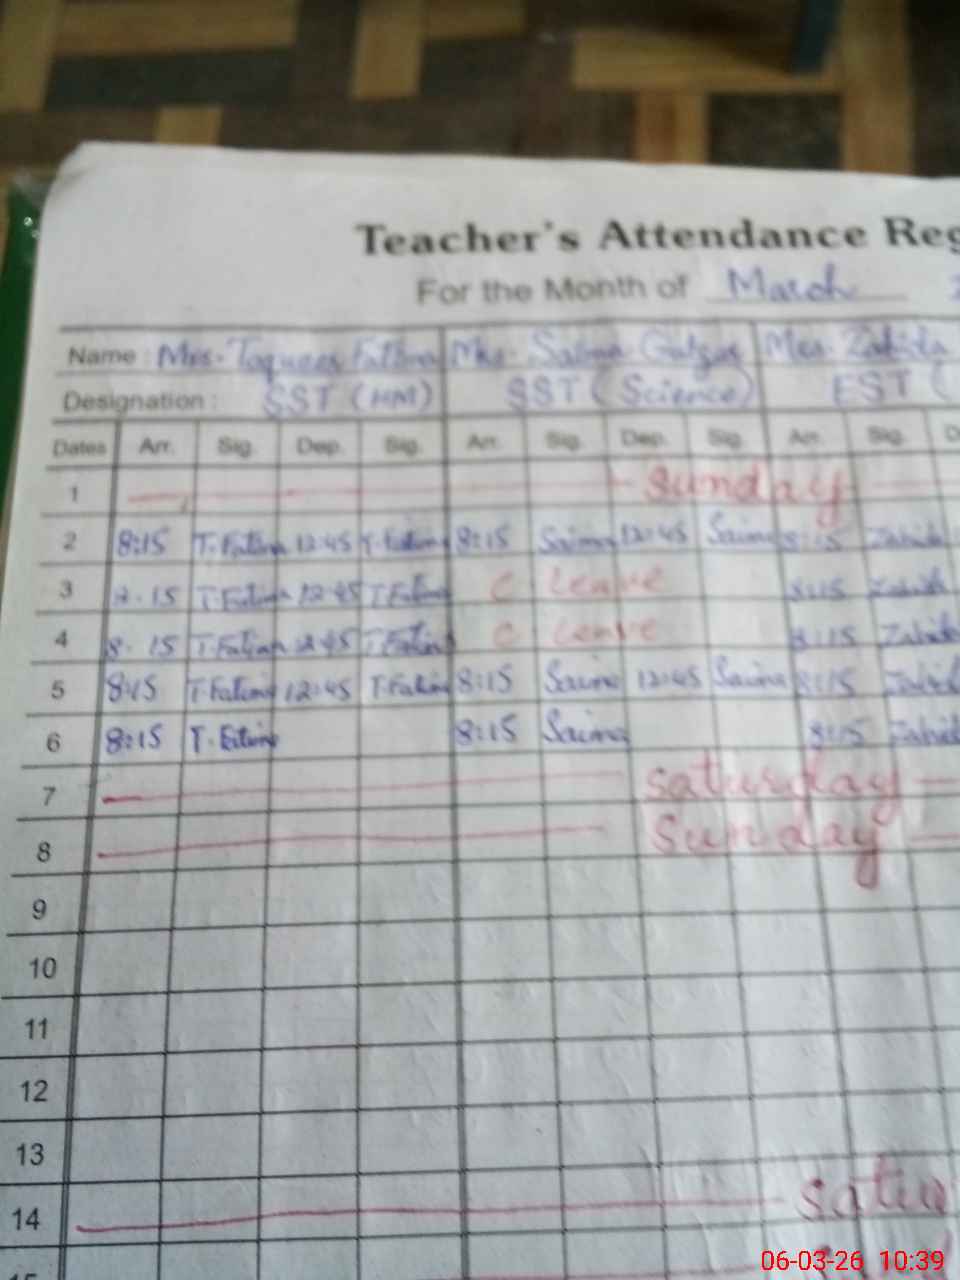 Teacher's Attendance Reg
For the Month of March
Name : Mrs. Fatima Mrs. Saima Mrs. Zahida
Designation : SST (HM) SST (Science) EST (
Dates Arr. Sig. Dep. Sig. Arr. Sig. Dep. Sig. Arr. Sig. D
1 Sunday
2 8:15 T. Fatima 12:45 T. Fatima 8:15 Saima 12:45 Saima 8:15 Zahida
3 T. Fatima 12:45 T. Fatima C Leave 8:15 Zahida
4 8:15 T. Fatima 12:45 T. Fatima C Leave 8:15 Zahida
5 8:15 T. Fatima 12:45 T. Fatima 8:15 Saima 12:45 Saima 8:15 Zahida
6 8:15 T. Fatima 8:15 Saima 8:15 Zahida
7 Saturday
8 Sunday
9
10
11
12
13
14 Satur
15
06-03-26 10:39